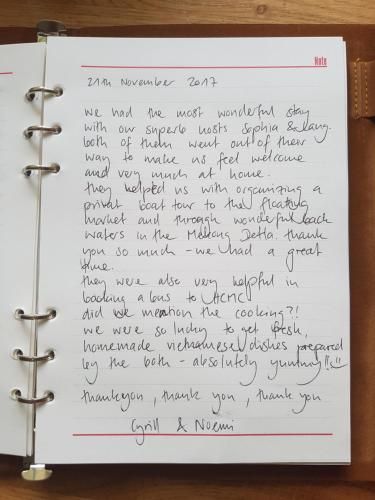 Note
21th November 2017
we had the most wonderful stay
with our superb hosts Sophia & Lang.
both of them went out of their
way to make us feel welcome
and very much at home.
they helped us with organizing a
private boat tour to the floating
market and through wonderful back
waters in the Mekong Detla. thank
you so much - we had a great
time.
they were also very helpful in
booking a bus to HCMC
did we mention the cooking?!
we were so lucky to get fresh,
homemade vietnamese dishes prepared
by the both - absolutely yummy!!!!
thank you, thank you, thank you
Cyrill & Noemi